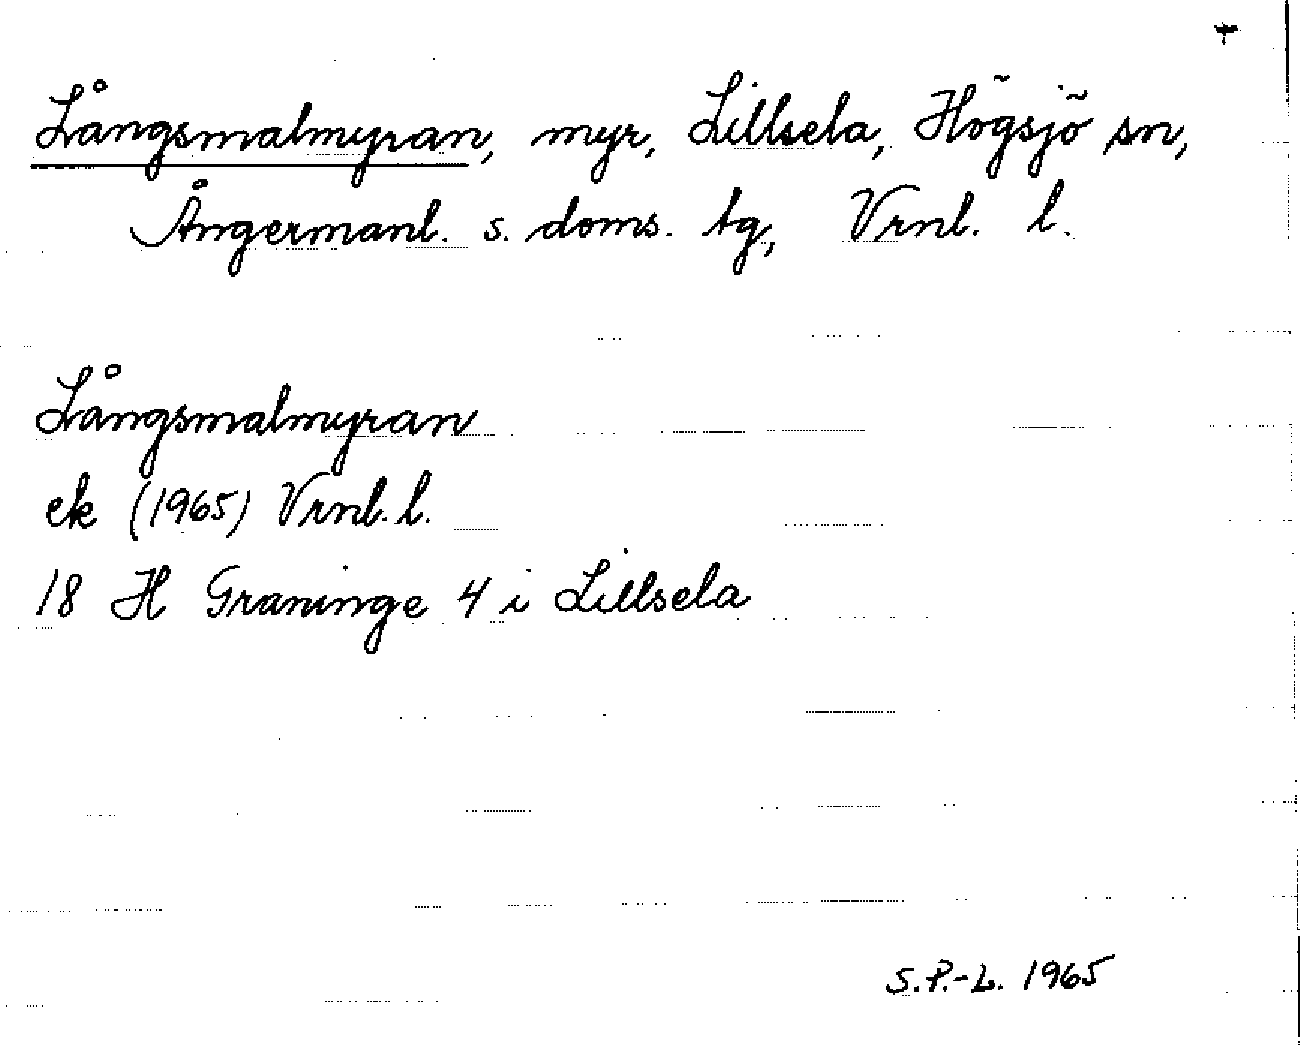 Långsmalmyran, myr, Lillsela, Högsjö sn,
Ångermanl. s. doms. tg, Vrnl. l.
Långsmalmyran
ek (1965) Vrnl. l.
18 H Graninge 4 i Lillsela
S.P.-L. 1965